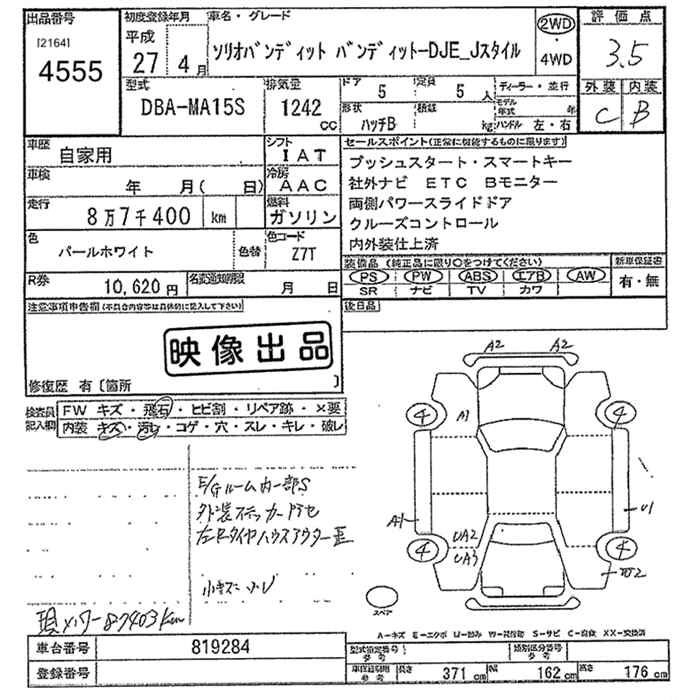 出品番号
[2164]
4555
初度登録年月
平成
27 4月
車名・グレード
ソリオバンディット バンディットーDJE_Jスタイル
2WD
・
4WD
評価点
3.5
外装 内装
C B
型式
DBA-MA15S
排気量
1242
cc
ドア 5
定員 5人
形状 ハッチB
積載 kg
ディーラー・並行
モデル年式 年
ハンドル 左・右
車歴 自家用
シフト IAT
車検 年 月( 日)
冷房 AAC
走行 8万7千400 km
燃料 ガソリン
色 パールホワイト
色替
色コード Z7T
R券 10,620円
名変通知期限 月 日
セールスポイント(正常に機能するものに限ります)
プッシュスタート・スマートキー
社外ナビ ETC Bモニター
両側パワースライドドア
クルーズコントロール
内外装仕上済
装備品(純正品に限り○をつけてください)
PS PW ABS エアB AW
SR ナビ TV カワ
新車保証書
有・無
注意事項申告欄(不具合内容等は具体的に記入して下さい)
後日品
映像出品
修復歴 有〔箇所 〕
検査員記入欄
FW キズ・飛石・ヒビ割・リペア跡・×要
内装 キズ・汚レ・コゲ・穴・スレ・キレ・破レ
E/Gルーム内一部S
外装ステッカー
左Rタイヤハウスアウター
小キズ
現メーター87403Km
A2 A2
4 A1 4
A1 U1
UA2
UA3
4 4
W2
スペア
A-キズ E-エクボ U-凹み W-補修跡 S-サビ C-腐食 XX-交換済
車台番号 819284
登録番号
型式指定番号
参考
類別区分番号
参考
長さ 371cm 幅 162cm 高さ 176cm